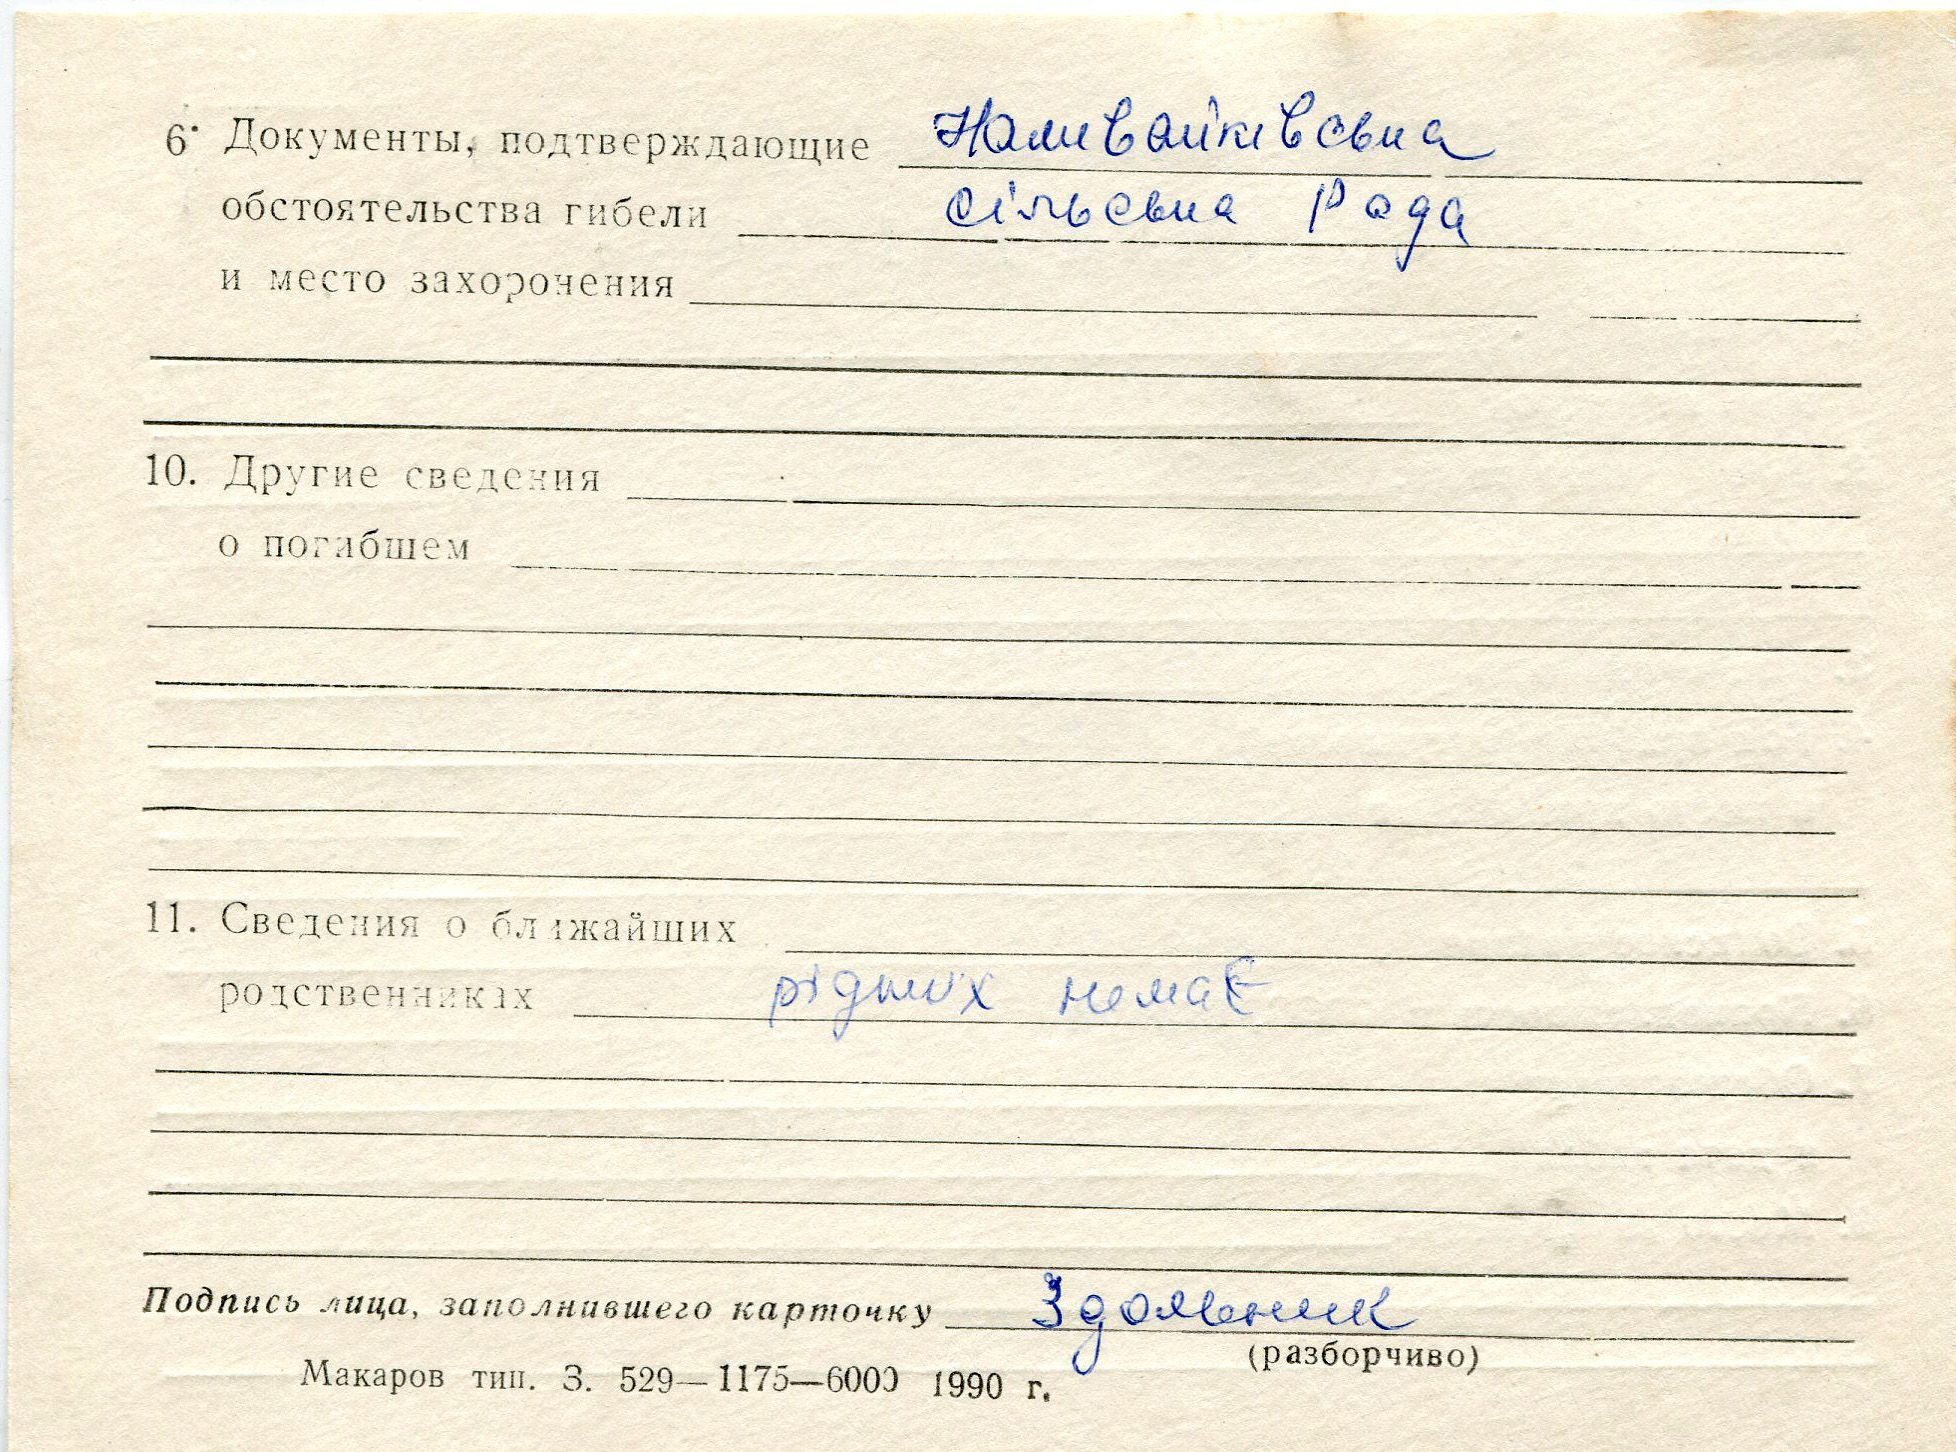 6. Документы, подтверждающие Наливайківська
обстоятельства гибели сільська Рада
и место захоронения
10. Другие сведения
о погибшем
11. Сведения о ближайших
родственниках рідних немає
Подпись лица, заполнившего карточку Здольник
(разборчиво)
Макаров тип. З. 529—1175—6000 1990 г.